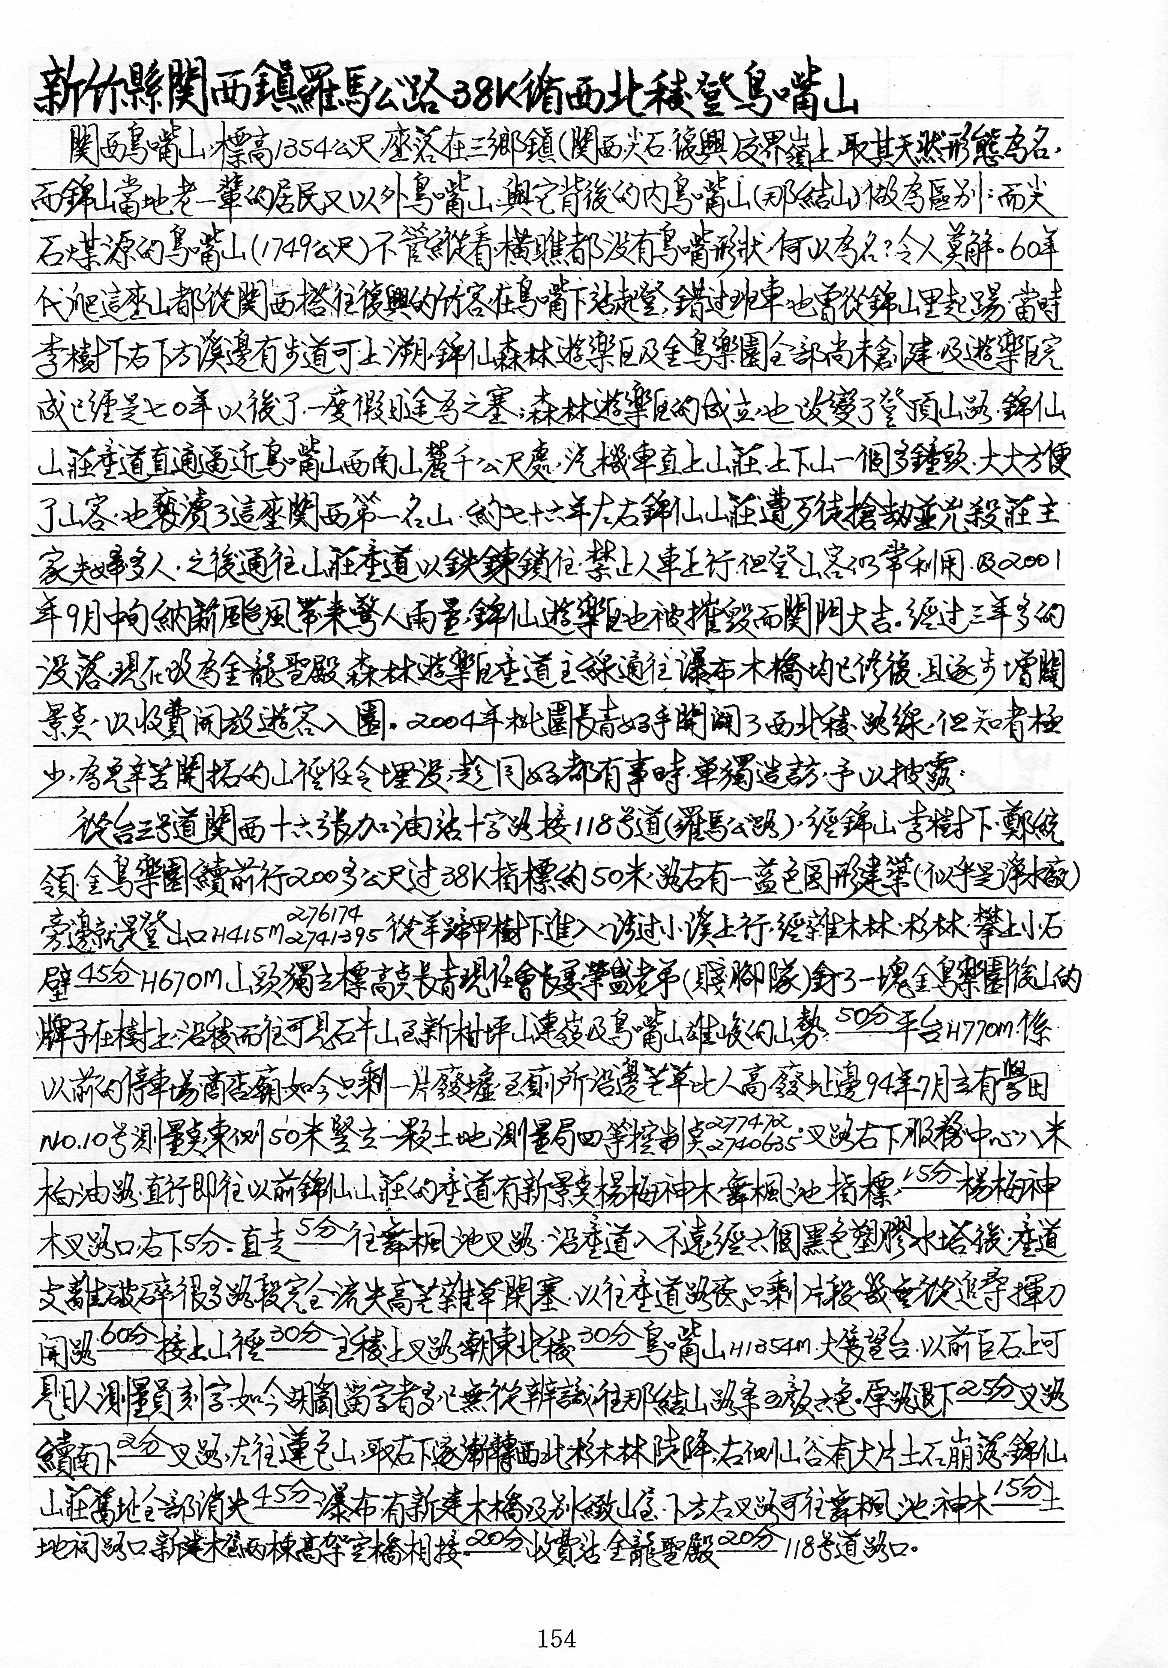 新竹縣関西鎮羅馬公路38K循西北稜登鳥嘴山
関西鳥嘴山,標高1354公尺,座落在三鄉鎮(関西尖石,復興)交界嶺上,取其天然形態為名,
而錦山當地老一輩的居民又以外鳥嘴山,與它背後的内鳥嘴山(那結山)做為區別;而尖
石煤源的鳥嘴山(1749公尺)不管縱看,橫瞧都没有鳥嘴形狀,何以為名?令人莫解。60年
代爬這座山都從関西搭往復興的行客在鳥嘴下站起登,錯过班車也曾從錦山里起踢,當時
李樹下右下方溪邊有步道可上溯,錦仙森林遊樂区及金鳥樂園全部尚未創建,及遊樂区完
成已經是七0年以後了,一度假日途為之塞;森林遊樂区的成立,也改變了登頂山路,錦仙
山莊産道直通逼近鳥嘴山西南山麓千公尺處,汽機車直上山莊,上下山一個多鐘頭,大大方便
了山客,也褻瀆了這座関西第一名山,約七十六年左右錦仙山莊遭歹徒搶劫並兇殺莊主
家夫婦多人,之後通往山莊産道以鉄鍊鎖住,禁止人車上行,但登山客仍常利用,及2001
年9月中旬納莉颱風带来驚人雨量,錦仙遊樂区也被摧毀而関門大吉。經过三年多的
没落,現在改為金龍聖殿,森林遊樂区産道主線通往瀑布木橋均已修復,且逐步增闢
景点,以收費開放遊客入園。2004年桃園長青好手開闢了西北稜路線,但知者極
少,為免辛苦開拓的山徑任令埋没,趁同好都有事時,單獨造訪,予以披露,
從台三号道関西十六張加油站十字路接118号道(羅馬公路),經錦山,李樹下,鄭統
領,金鳥樂園續前行200多公尺过38K指標約50米,路右有一蓝色圆形建築(似乎是淨水廠)
旁邊就是登山口H415M 276174 2741395 從羊蹄甲樹下進入,涉过小溪上行,經雜木林,杉林,攀上小石
壁45分H670M山頭獨立標高点長青現任會長姜榮盛老弟(賤腳隊)釘了一塊金鳥樂園後山的
牌子在樹上,沿稜而往可見石牛山至新柑坪山連嶺及鳥嘴山雄峻的山勢,50分平台H770M係
以前的停車場商店廟,如今只剩一片廢墟,至廁所沿邊芒草比人高,發址邊94年7月立有學田
NO.10号測量点,東側50米豎立一顆土地測量局四等控制点2774702 2740635,叉路右下服務中心八米
柏油路,直行即往以前錦仙山莊的産道,有新景点楊梅神木,舞楓池指標,15分楊梅神
木叉路口,右下5分。直走5分往舞楓池叉路,沿産道入不遠,經六個黑色塑膠水塔後,産道
支離破碎很多路段完全流失高芒雜草閉塞,以往産道路痕只剩片段,幾無從追尋揮刀
開路60分接上山徑30分主稜上叉路朝東北稜30分鳥嘴山H1354M,大展望台,以前巨石上可
見日人測量員刻字,如今胡亂留字者多,已無從辨識,往那結山路条五顏六色,原路退下25分叉路
續南下2分叉路,左往蓮包山,取右下逐漸轉西北杉木林陡降,右側山谷有大片土石崩落,錦仙
山莊舊址全部消失45分瀑布,有新建木橋及別緻山室,下方右叉路可往舞楓池,神木15分土
地祠路口,新建木屋兩棟高架空橋相接。20分收費站,金龍聖殿20分118号道路口。
154